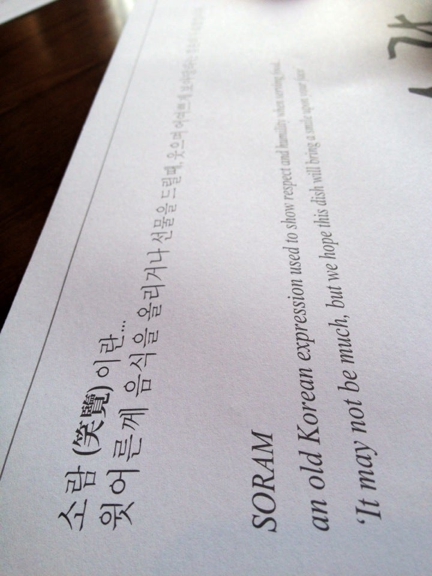 소람 (笑覽) 이란...
윗어른께 음식을 올리거나 선물을 드릴때, 웃으며
SORAM
an old Korean expression used to show respect and humility when serving food.
'It may not be much, but we hope this dish will bring a smile upon your face